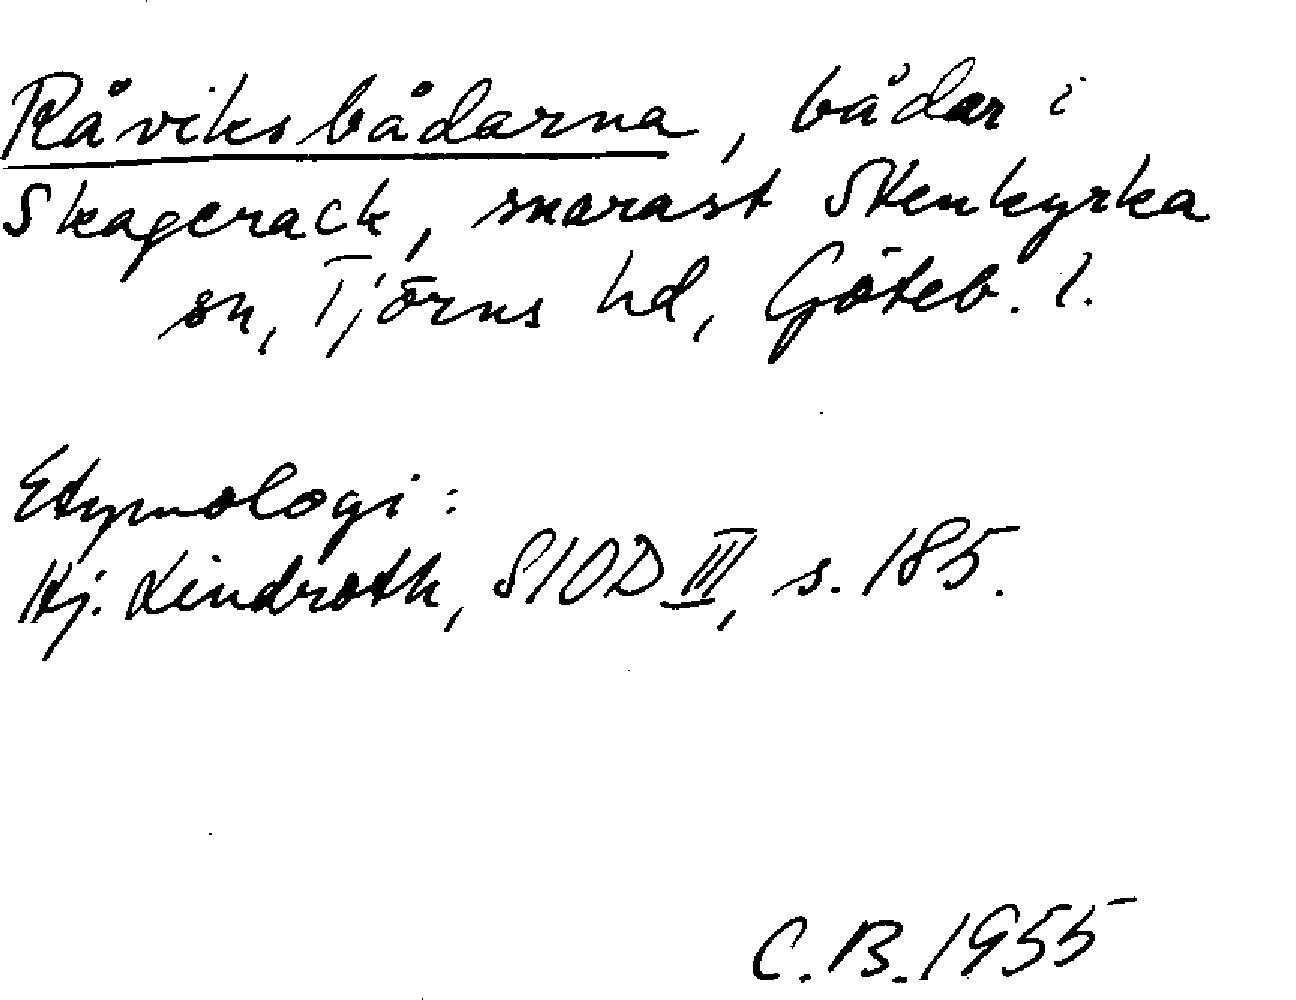 Råviksbådarna, bådar i
Skagerack, snarast Stenkyrka
sn, Tjörns hd, Göteb. l.
Etymologi:
Hj. Lindroth, SIOD III, s. 185.
C. B. 1955